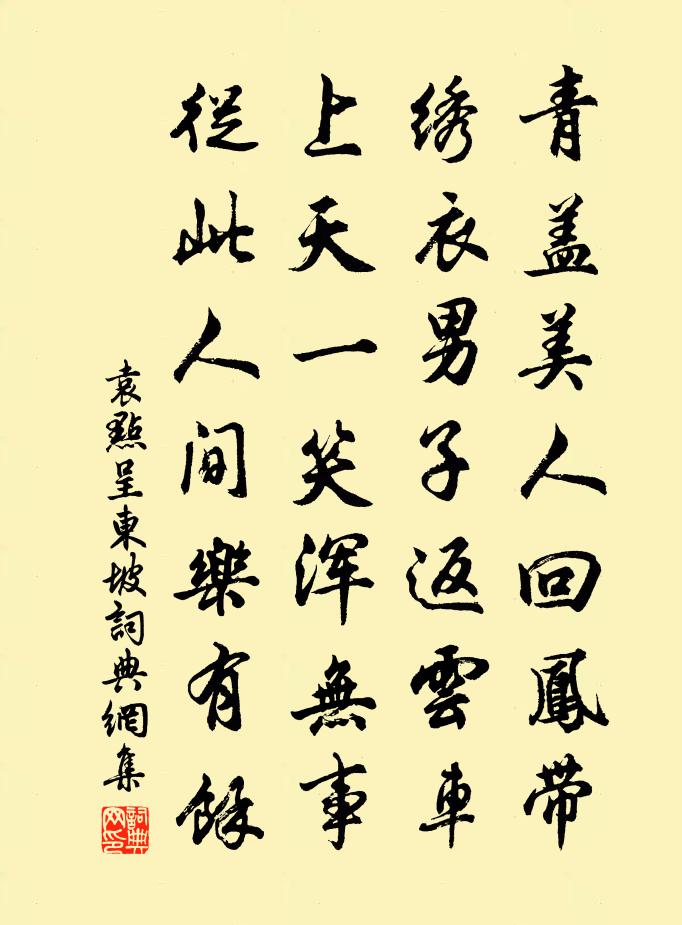 青盖美人回鳳带
绣衣男子返雲車
上天一笑浑無事
從此人间樂有餘
袁點呈東坡詞典網集
詞典网印